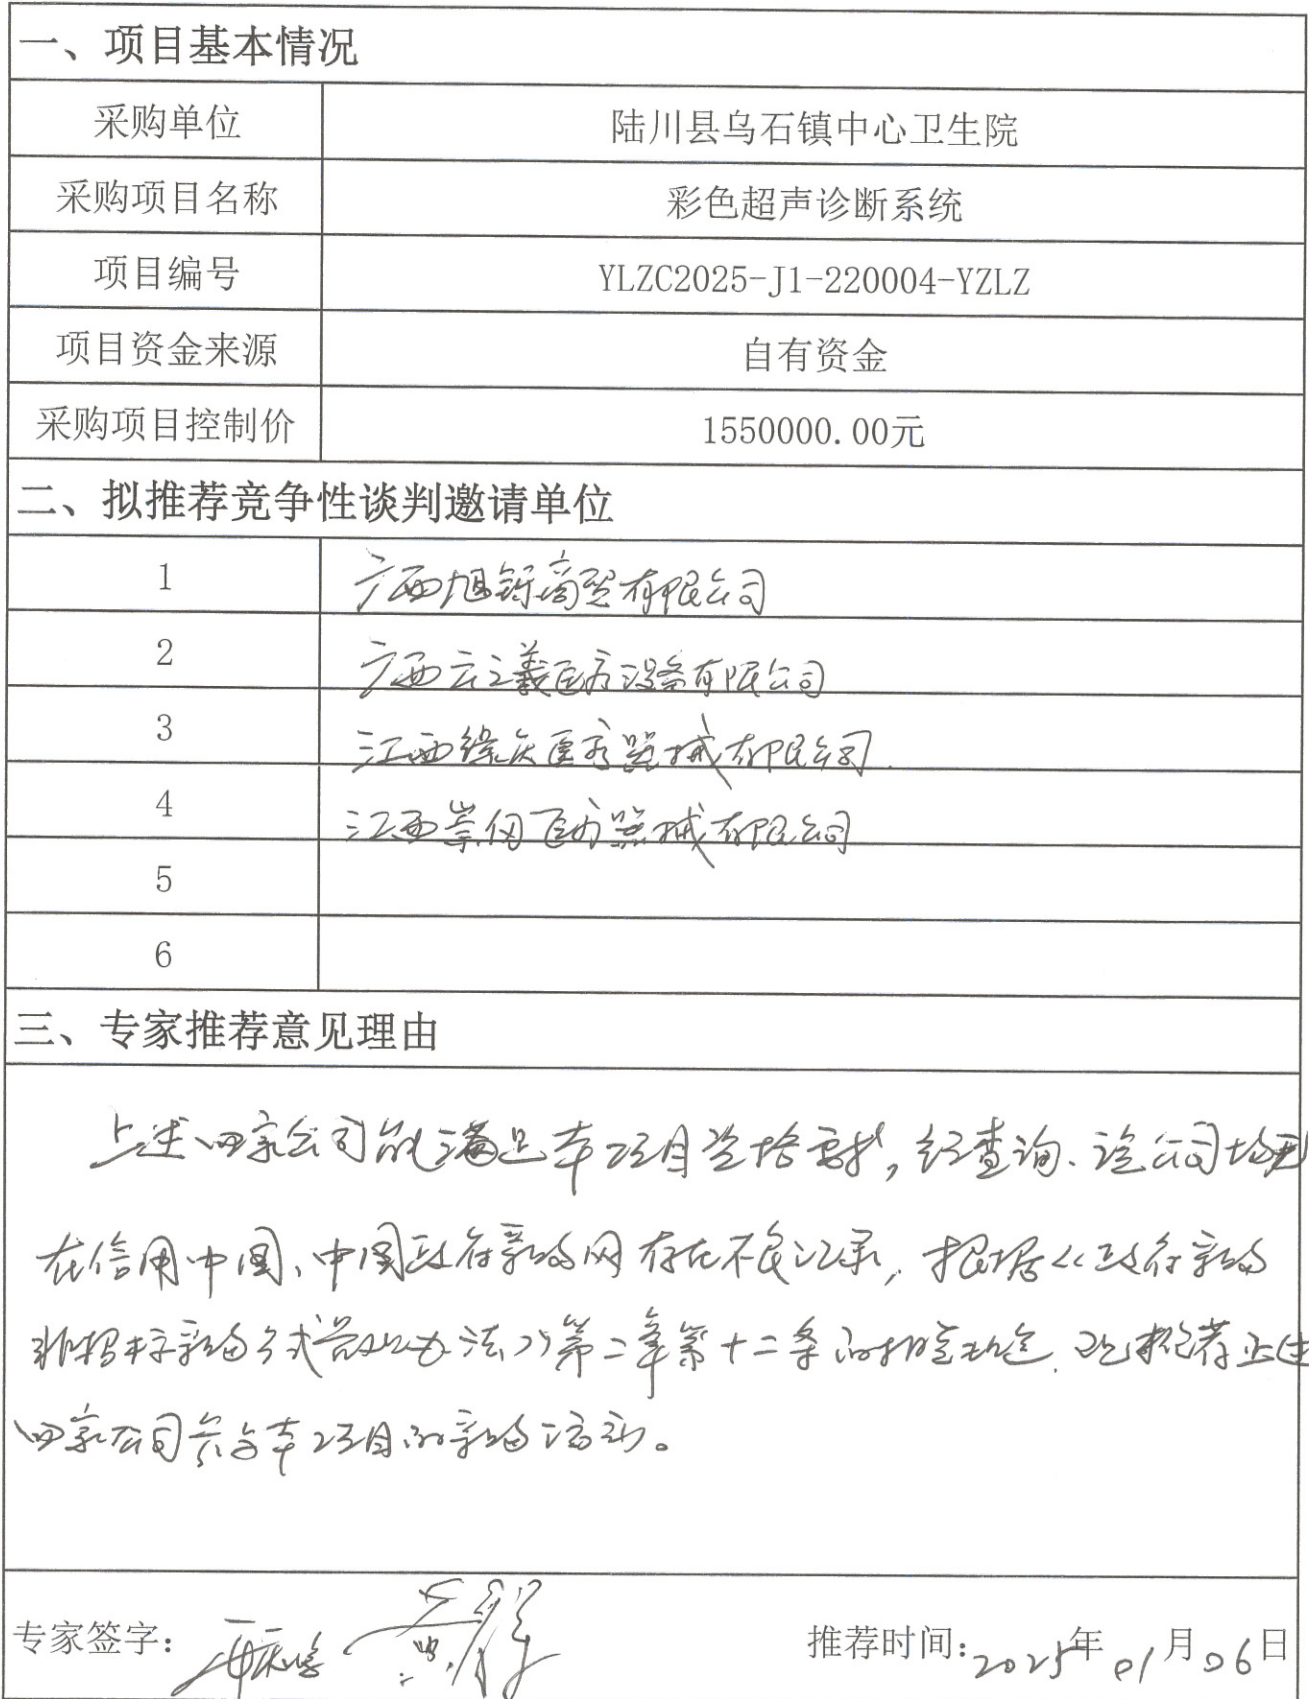 一、项目基本情况
采购单位 陆川县乌石镇中心卫生院
采购项目名称 彩色超声诊断系统
项目编号 YLZC2025-J1-220004-YZLZ
项目资金来源 自有资金
采购项目控制价 1550000.00元
二、拟推荐竞争性谈判邀请单位
1 广西旭铄商贸有限公司
2 广西云之義医疗设备有限公司
3 江西缘庆医疗器械有限公司
4 江西崇仞医疗器械有限公司
5
6
三、专家推荐意见理由
上述四家公司能满足本项目资格要求,经查询、该公司均无
在信用中国、中国政府采购网存在不良记录,根据《政府采购
非招标采购方式管理办法》第二章第十二条的相关规定,现推荐上述
四家公司参与本项目的采购活动。
专家签字: 推荐时间:2025年01月06日